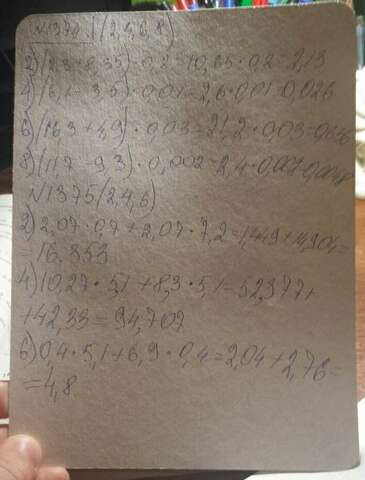 N1374. (2,4,6,8)
2) (2,3 + 8,35) · 0,2 = 10,65 · 0,2 = 2,13
4) (6,1 - 3,5) · 0,01 = 2,6 · 0,01 = 0,026
6) (16,3 + 4,9) · 0,03 = 21,2 · 0,03 = 0,636
8) (11,7 - 9,3) · 0,002 = 2,4 · 0,002 = 0,0048
N1375 (2,4,6)
2) 2,07 · 0,7 + 2,07 · 7,2 = 1,449 + 14,904 =
= 16.353
4) 10,27 · 5,1 + 8,3 · 5,1 = 52,377 +
+ 42,33 = 94,707
6) 0,4 · 5,1 + 6,9 · 0,4 = 2,04 + 2,76 =
= 4,8